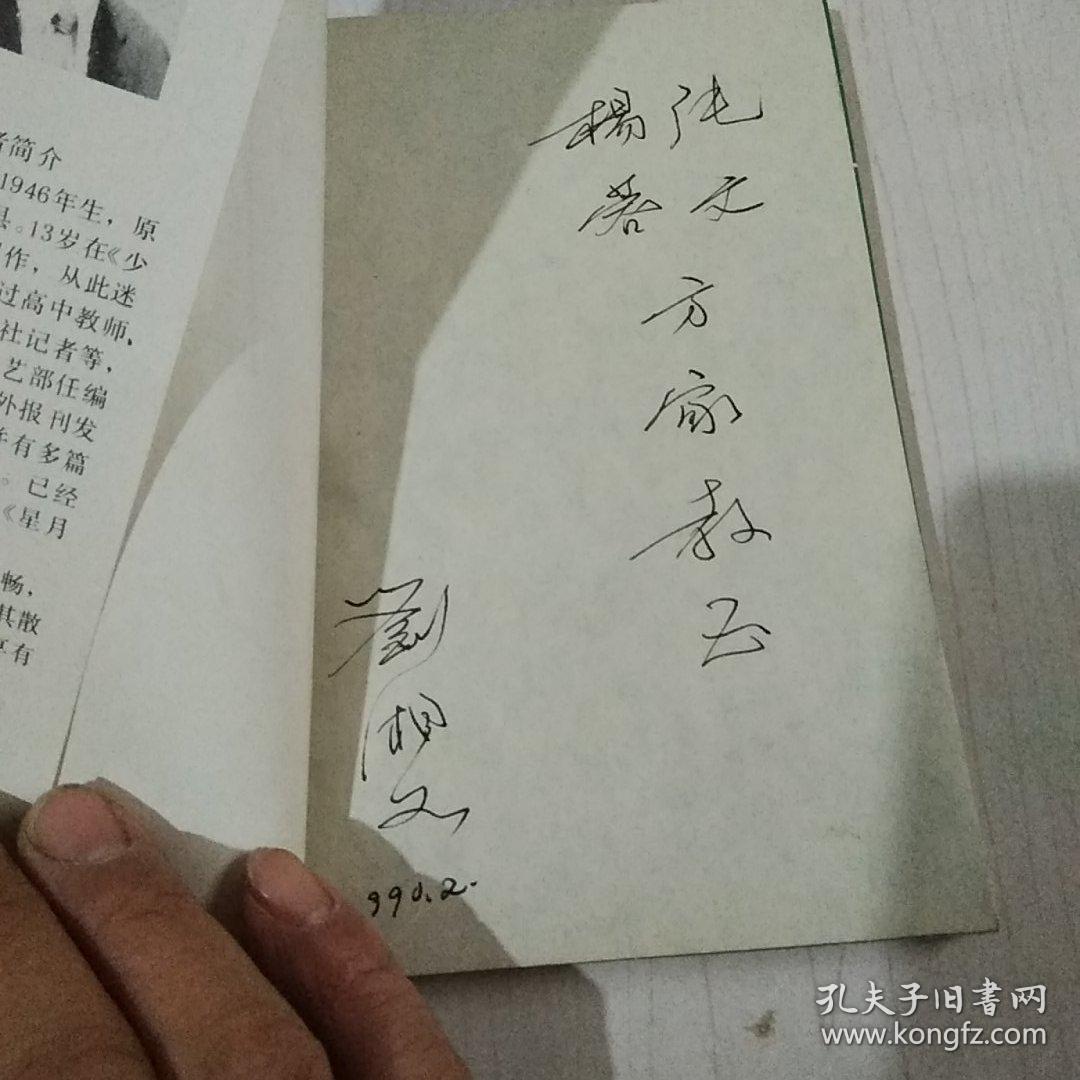 者简介
1946年生，原
县。13岁在《少
作，从此迷
过高中教师，
社记者等，
艺部任编
外报刊发
有多篇
。已经
《星月
畅，
其散
有
张文
楊
方家教正
劉湘文
990.2.
孔夫子旧書网
www.kongfz.com